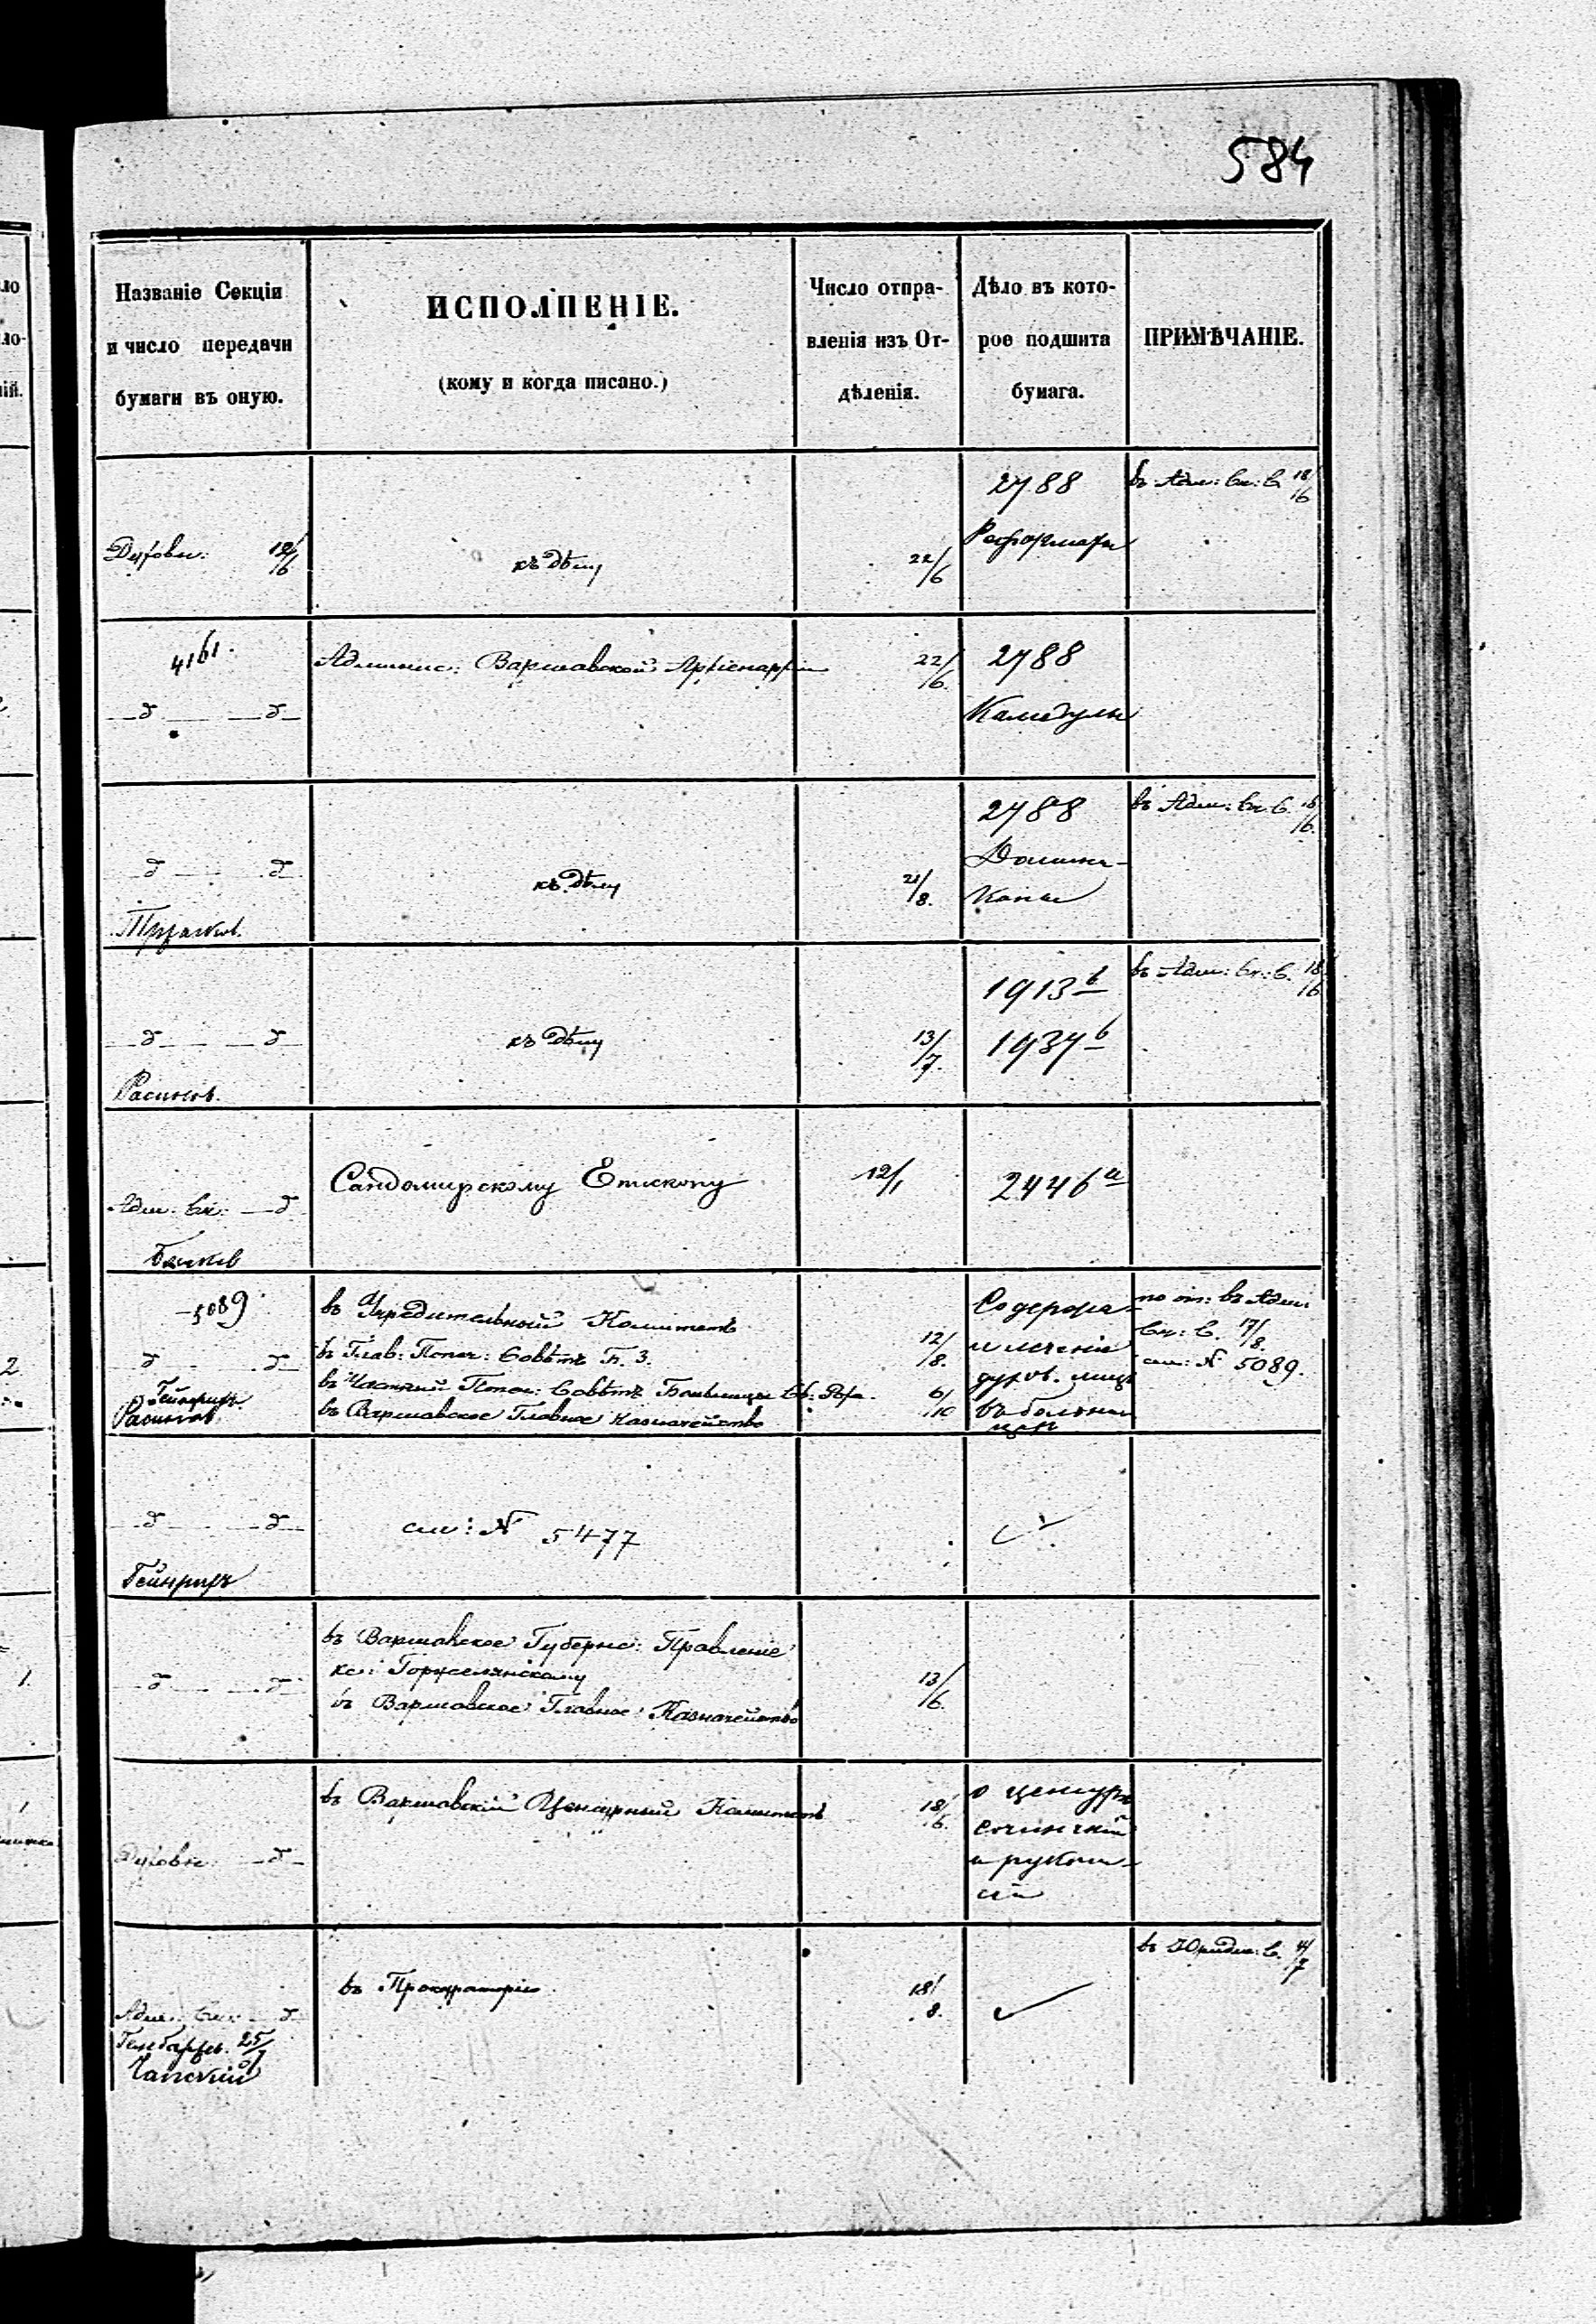 584
Названіе Секціи
и число передачи
бумаги въ оную.
ИСПОЛНЕНІЕ.
(кому и когда писано.)
Число отпра-
вленія изъ От-
дѣленія.
Дѣло въ кото-
рое подшита
бумага.
ПРИМѢЧАНІЕ.
Духовн: 12/6
къ дѣлу
22/6
2788
Реформаты
въ Адм: Ск: С. 18/6
4161.
—д— —д—
Админис: Варшавской Архіепархіи
22/6.
2788
Камедулы
—д— —д—
къ дѣлу
21/8.
2788
Домини-
каны
въ Адм: Ск: С. /6.
—д— —д—
къ дѣлу
13/7.
1913 b
1937 b
въ Адм: Ск: С. 18/6
Адм: Ск: —д
Сандомирскому Епископу
12/1
2446 a
5089
—д— —д—
Гейнрихъ
въ Учредительный Комитетъ
въ Глав: Попеч: Совѣтъ Б. З.
въ Частный Попеч: Совѣтъ Больницы Св:
въ Варшавское Главное Казначейство
12/8.
6/10
Содержа-
и леченіе
духов. лицъ
въ больни-
цахъ
по от: въ Адм:
Ск: С. 17/8.
см: № 5089.
—д— —д—
Гейнрихъ
см: № 5477
—д— —д—
въ Варшавское Губернс: Правленіе
въ Варшавское Главное Казначейство
13/6.
Духовн: —д—
въ Варшавскій Цензурный Комитетъ
18/6.
о цензурѣ
сочиненій
и рукопи-
сей
Адм: Ск: —д
въ Прокураторію
18/8.
въ Юридич: С. /7